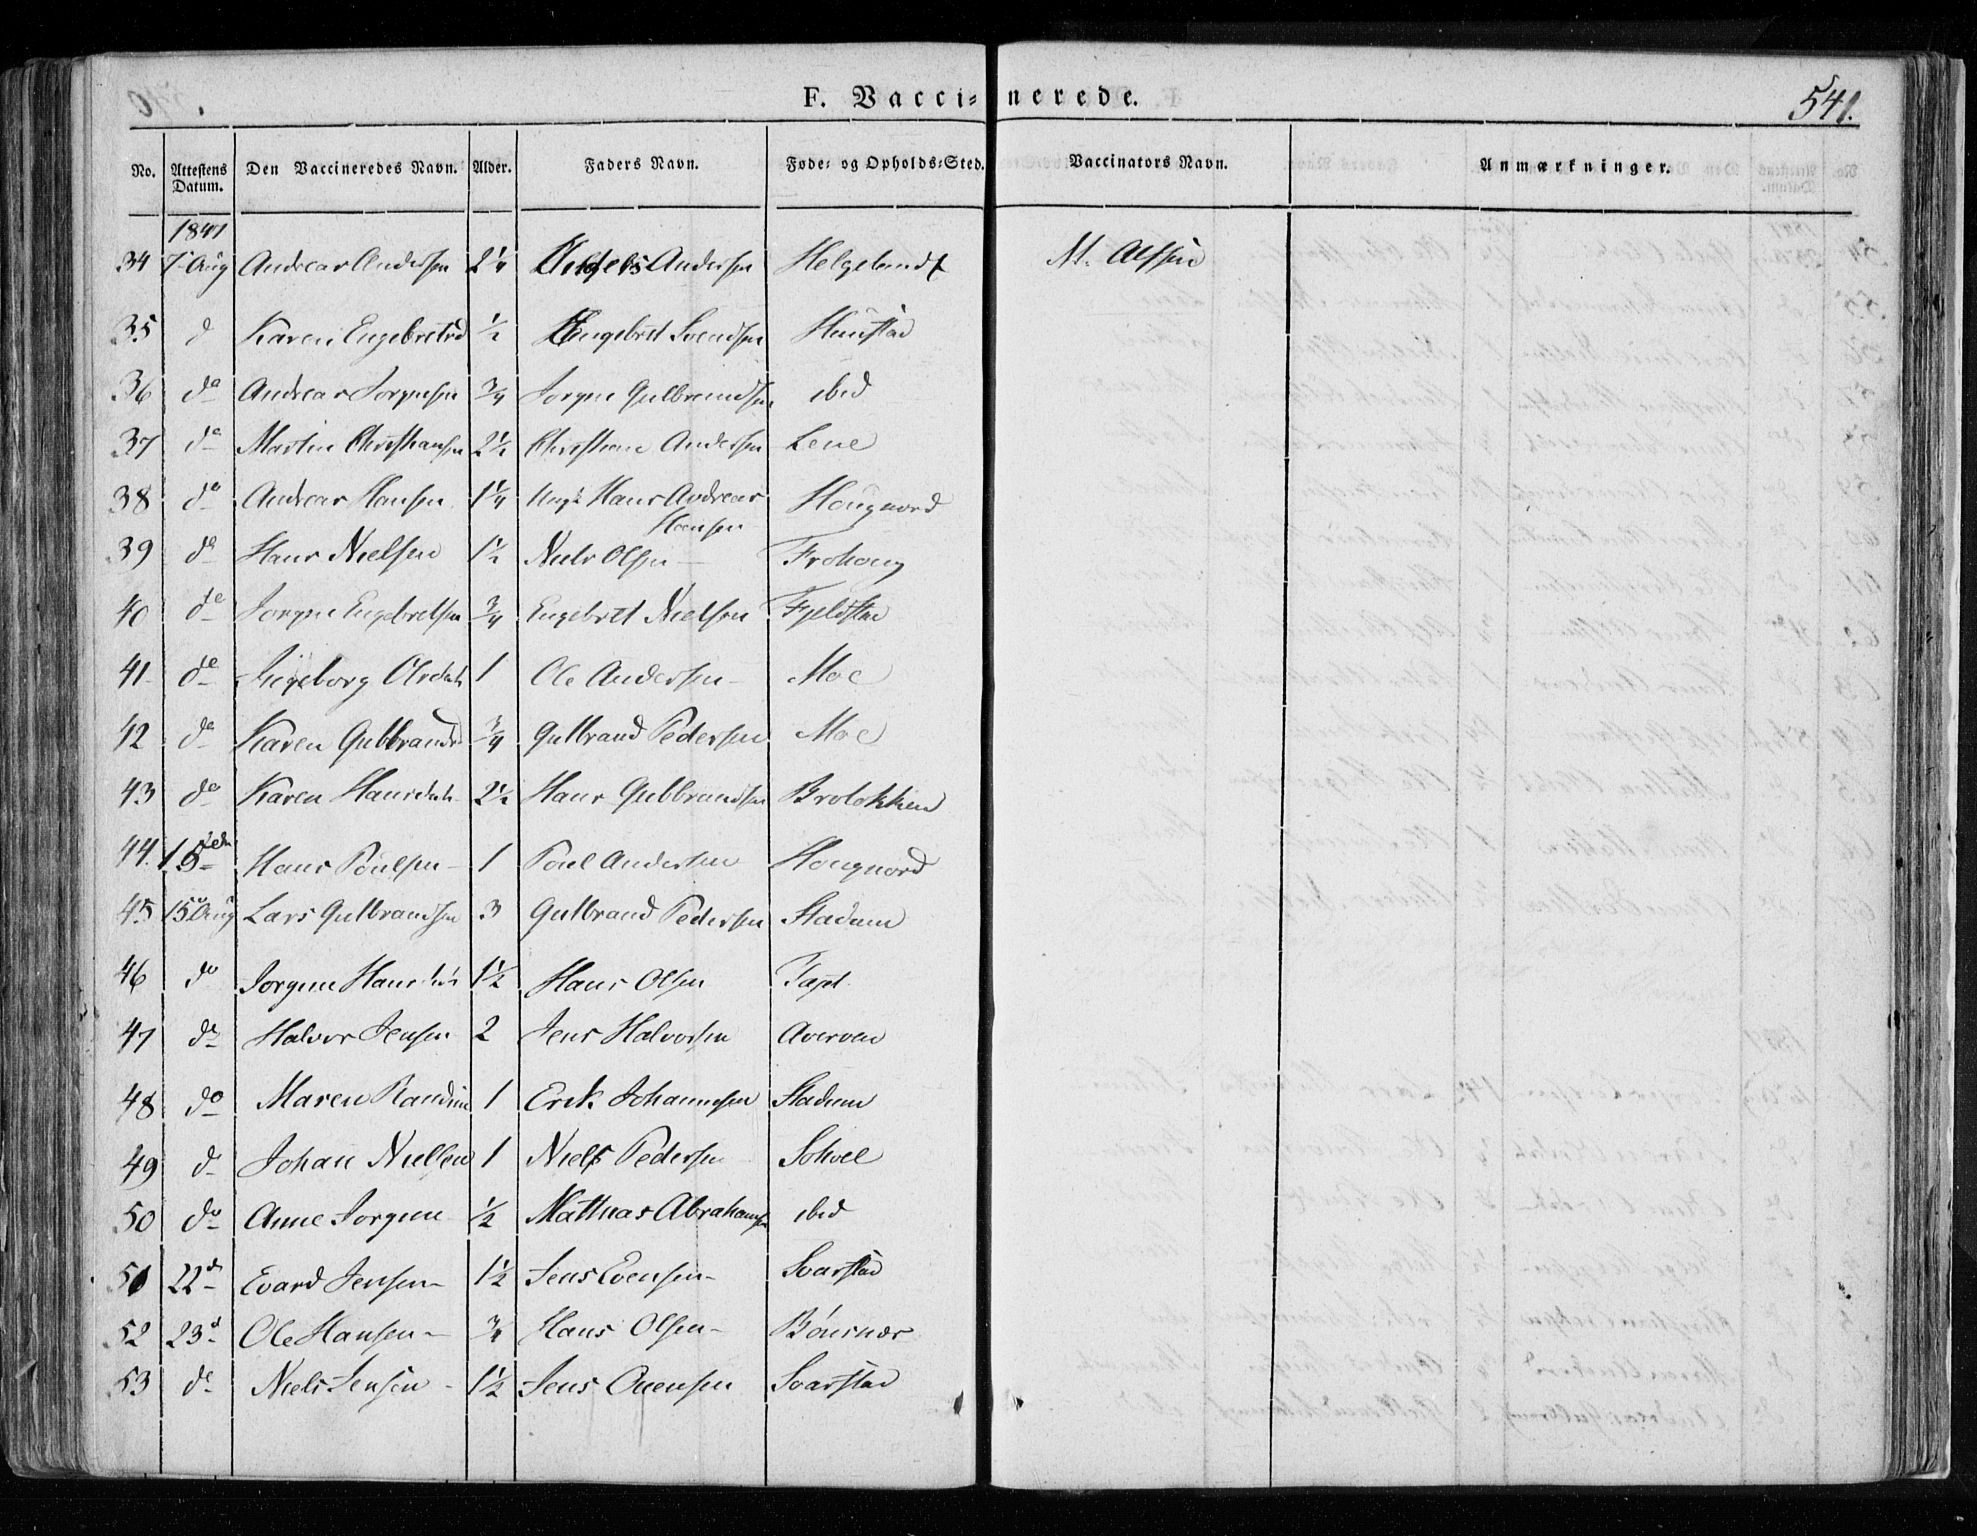 F. Vacci=nerede.
541.
No. Attestens Datum. Den Vaccineredes Navn. Alder. Faders Navn. Føde= og Opholds=Sted. Vaccinators Navn. Anmærkninger.
1841
34 7 Aug Andreas Andersen 2¼ Andersen Helgeland M. Alfsen
35 d Karen Engebretsd ½ Engebret Svendsen Hunstad
36 do Andreas Jorgensen ¾ Jorgen Gulbrandsen ibid
37 do Martin Christiansen 2½ Christian Andersen Lene
38 do Andreas Hansen 1¼ Ungk Hans Andreas
Hansen Hougnord
39 do Hans Nielsen 1½ Niels Olsen Frohoug
40 do Jorgen Engebretsen ¾ Engebret Nielsen Fjeldstad
41 do Ingeborg Olsdatr 1 Ole Andersen Moe
42 do Karen Gulbrands ¾ Gulbrand Pedersen Moe
43 do Karen Hansdatr 2½ Hans Gulbrandsen Brolokken
44. 15 Hans Poulsen 1 Poul Andersen Hougnord
45 15 Aug Lars Gulbrandsen 3 Gulbrand Pedersen Stadum
46 do Jorgine Hans 1½ Hans Olsen Tapt
47 do Halvor Jensen 2 Jens Halvorsen Averøen
48 do Maren Randine 1 Erik Johannesen Stadum
49 d Johan Nielsen 1 Niels Pedersen Solvel
50 do Anne Jorgine ½ Mathias Abrahamsen ibid
51 22d Evard Jensen 1½ Jens Evensen Svarstad
52 23d Ole Hansen ¾ Hans Olsen Bönsnæs
53 do Niels Jensen 1½ Jens Evensen Svarstad